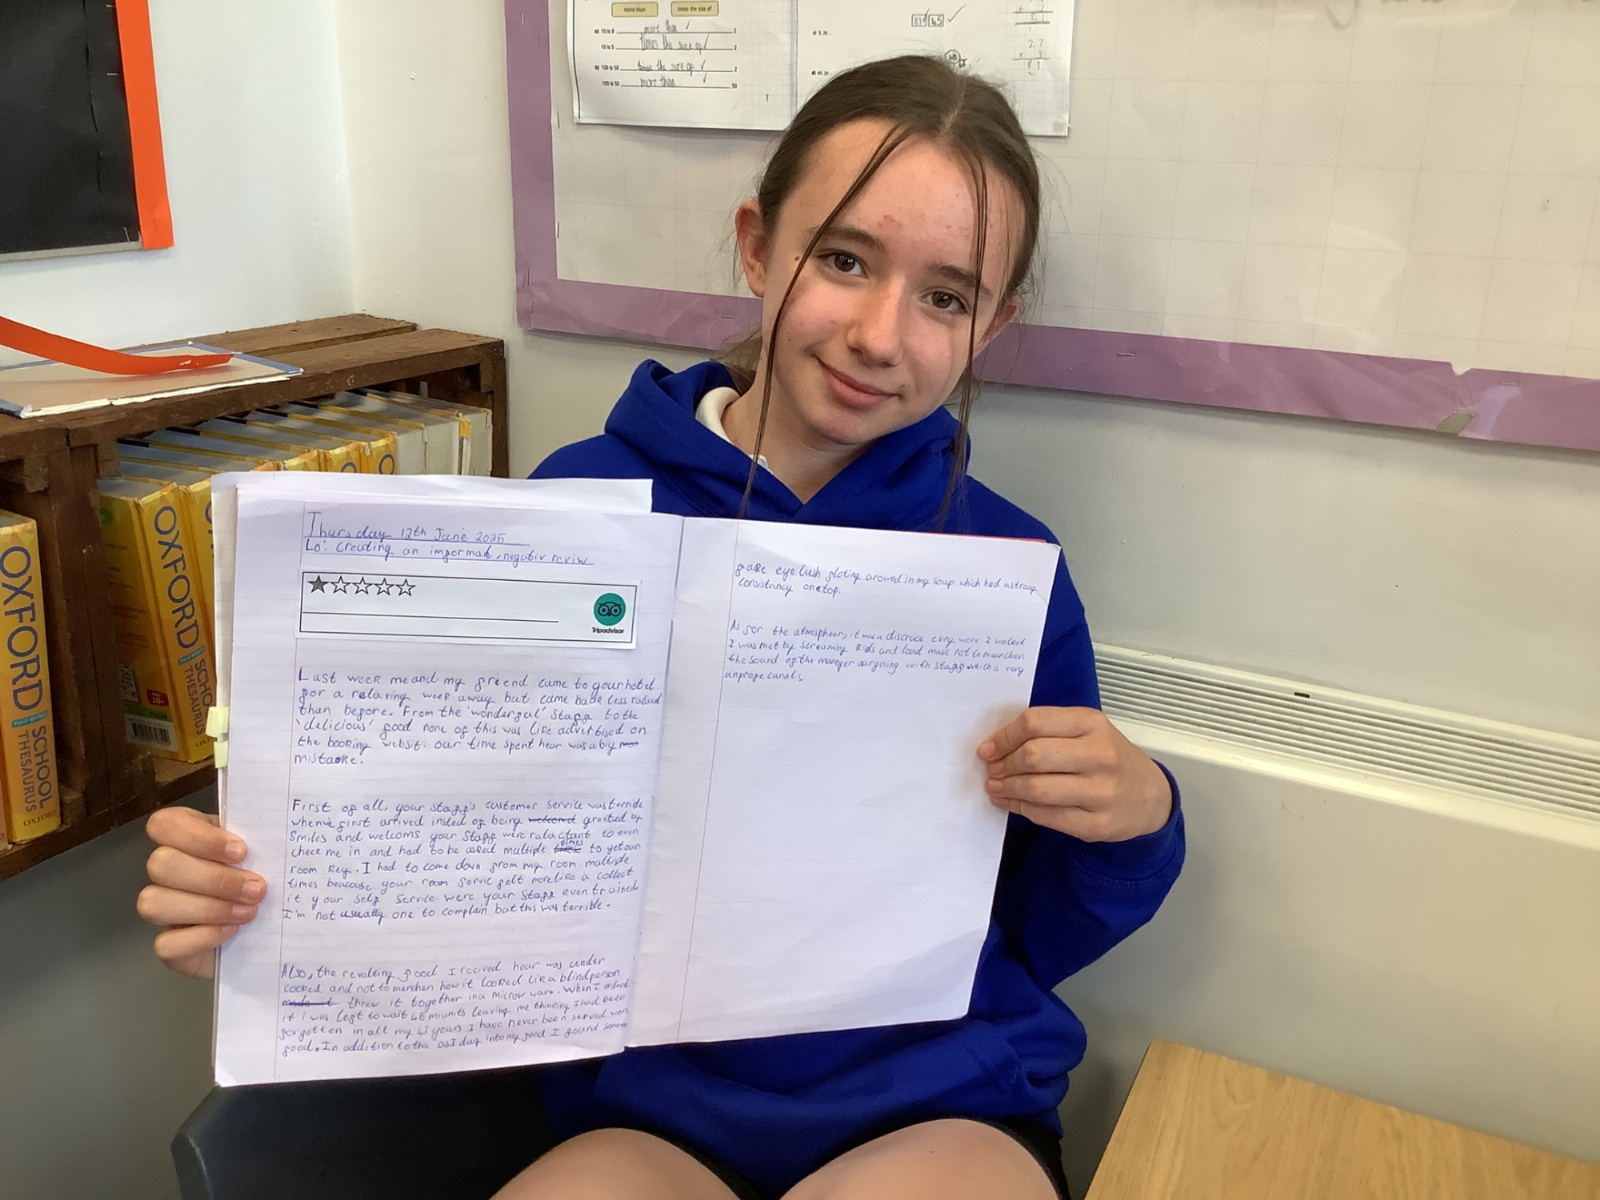 more than
times the size of
a) 10 is 8 more than ✓ 2
10 is 5 times the size of ✓ 2
b) 100 is 50 times the size of ✓ 2
100 is 50 more than ✓ 50
27
81
OXFORD
SCHOOL
THESAURUS
OXFORD
SCHOOL
THESAURUS
OXFORD
Thursday 12th June 2025
Lo: Creating an informal, negativ reviw
Tripadvisor
Last week me and my friend came to your hotel
for a relaxing week away but came back less relaxed
than before. From the 'wonderful' staff to the
'delicious' food none of this was like advertised on
the booking websit. our time spent hear was a big
mistake.
First of all, your staff's customer service was terrible
when we first arrived insted of being welcomed greeted by
smiles and welcoms your staff were ralactant to even
check me in and had to be asked multiple times to get our
room key. I had to come down from my room multiple
times beacause your room servic felt more like a collect
it your self service were your staff even trained.
I'm not usually one to complain but this was terrible.
Also, the revalting food I recived hear was under
cooked and not to menchen how it looked like a blind person
made it threw it together in a microwave. When I orderd
it i was left to wait 46 miunits leaving me thinking I had been
forgotten in all my 43 years I have never been served wors
food. In addition to this as I dug into my food I found someone
fake eye lash floting around in my soup which had a strang
consistancy on top.
As for the atmosphear, it was a discrace evry were I walked
I was met by screaming kids and loud music not to menchen
the sound of the maneger aargiing with staff which is very
unprofecanal!